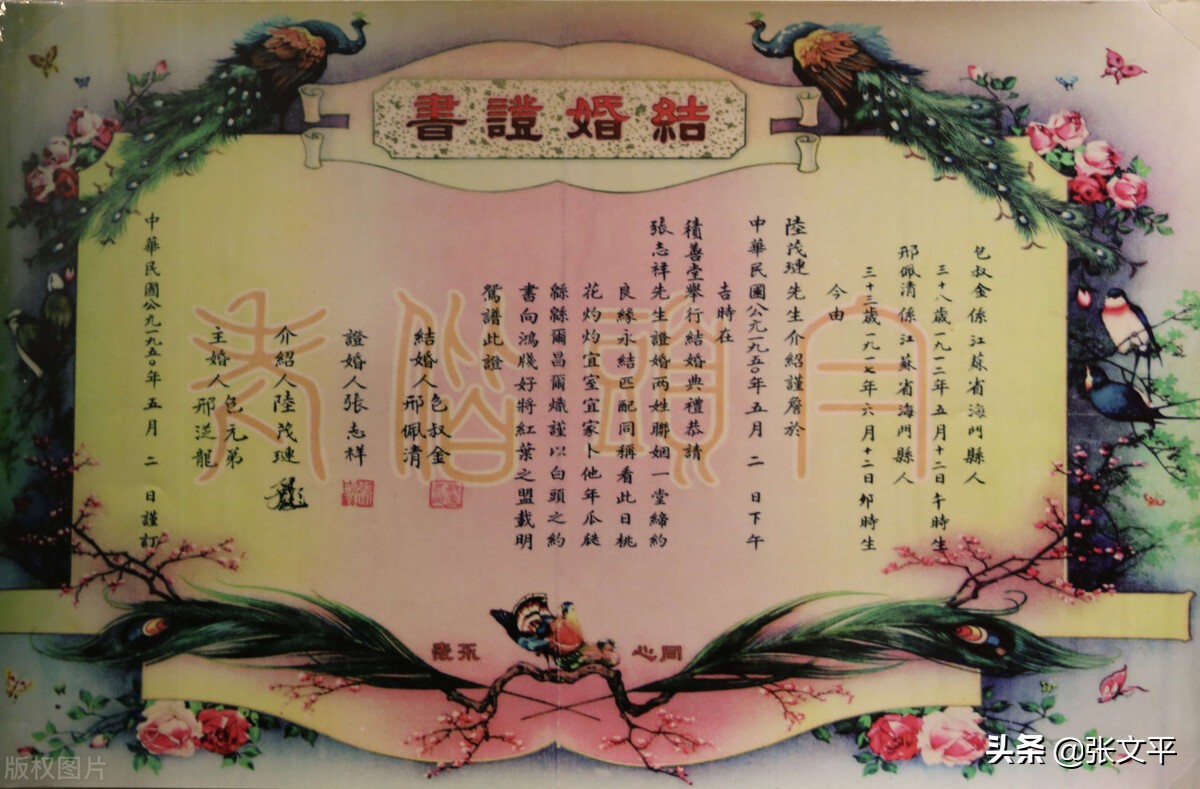 結婚證書
包叔金係江蘇省海門縣人
三十八歲一九一二年五月十二日午時生
邢佩清係江蘇省海門縣人
三十三歲一九一七年六月十二日卯時生
今由
陸茂璉先生介紹謹詹於
中華民國公元一九五〇年五月二日下午
吉時在
積善堂舉行結婚典禮恭請
張志祥先生證婚两姓聯姻一堂締約
良緣永結匹配同稱看此日桃
花灼灼宜室宜家卜他年瓜瓞
緜緜爾昌爾熾謹以白頭之約
書向鴻牋好將紅葉之盟載明
鴛譜此證
結婚人 包叔金 邢佩清
證婚人張志祥
介紹人陸茂璉
主婚人 包元弟 邢龍
中華民國公元一九五〇年五月二日謹訂
白頭偕老
同心 永愛
头条 @张文平
版权图片